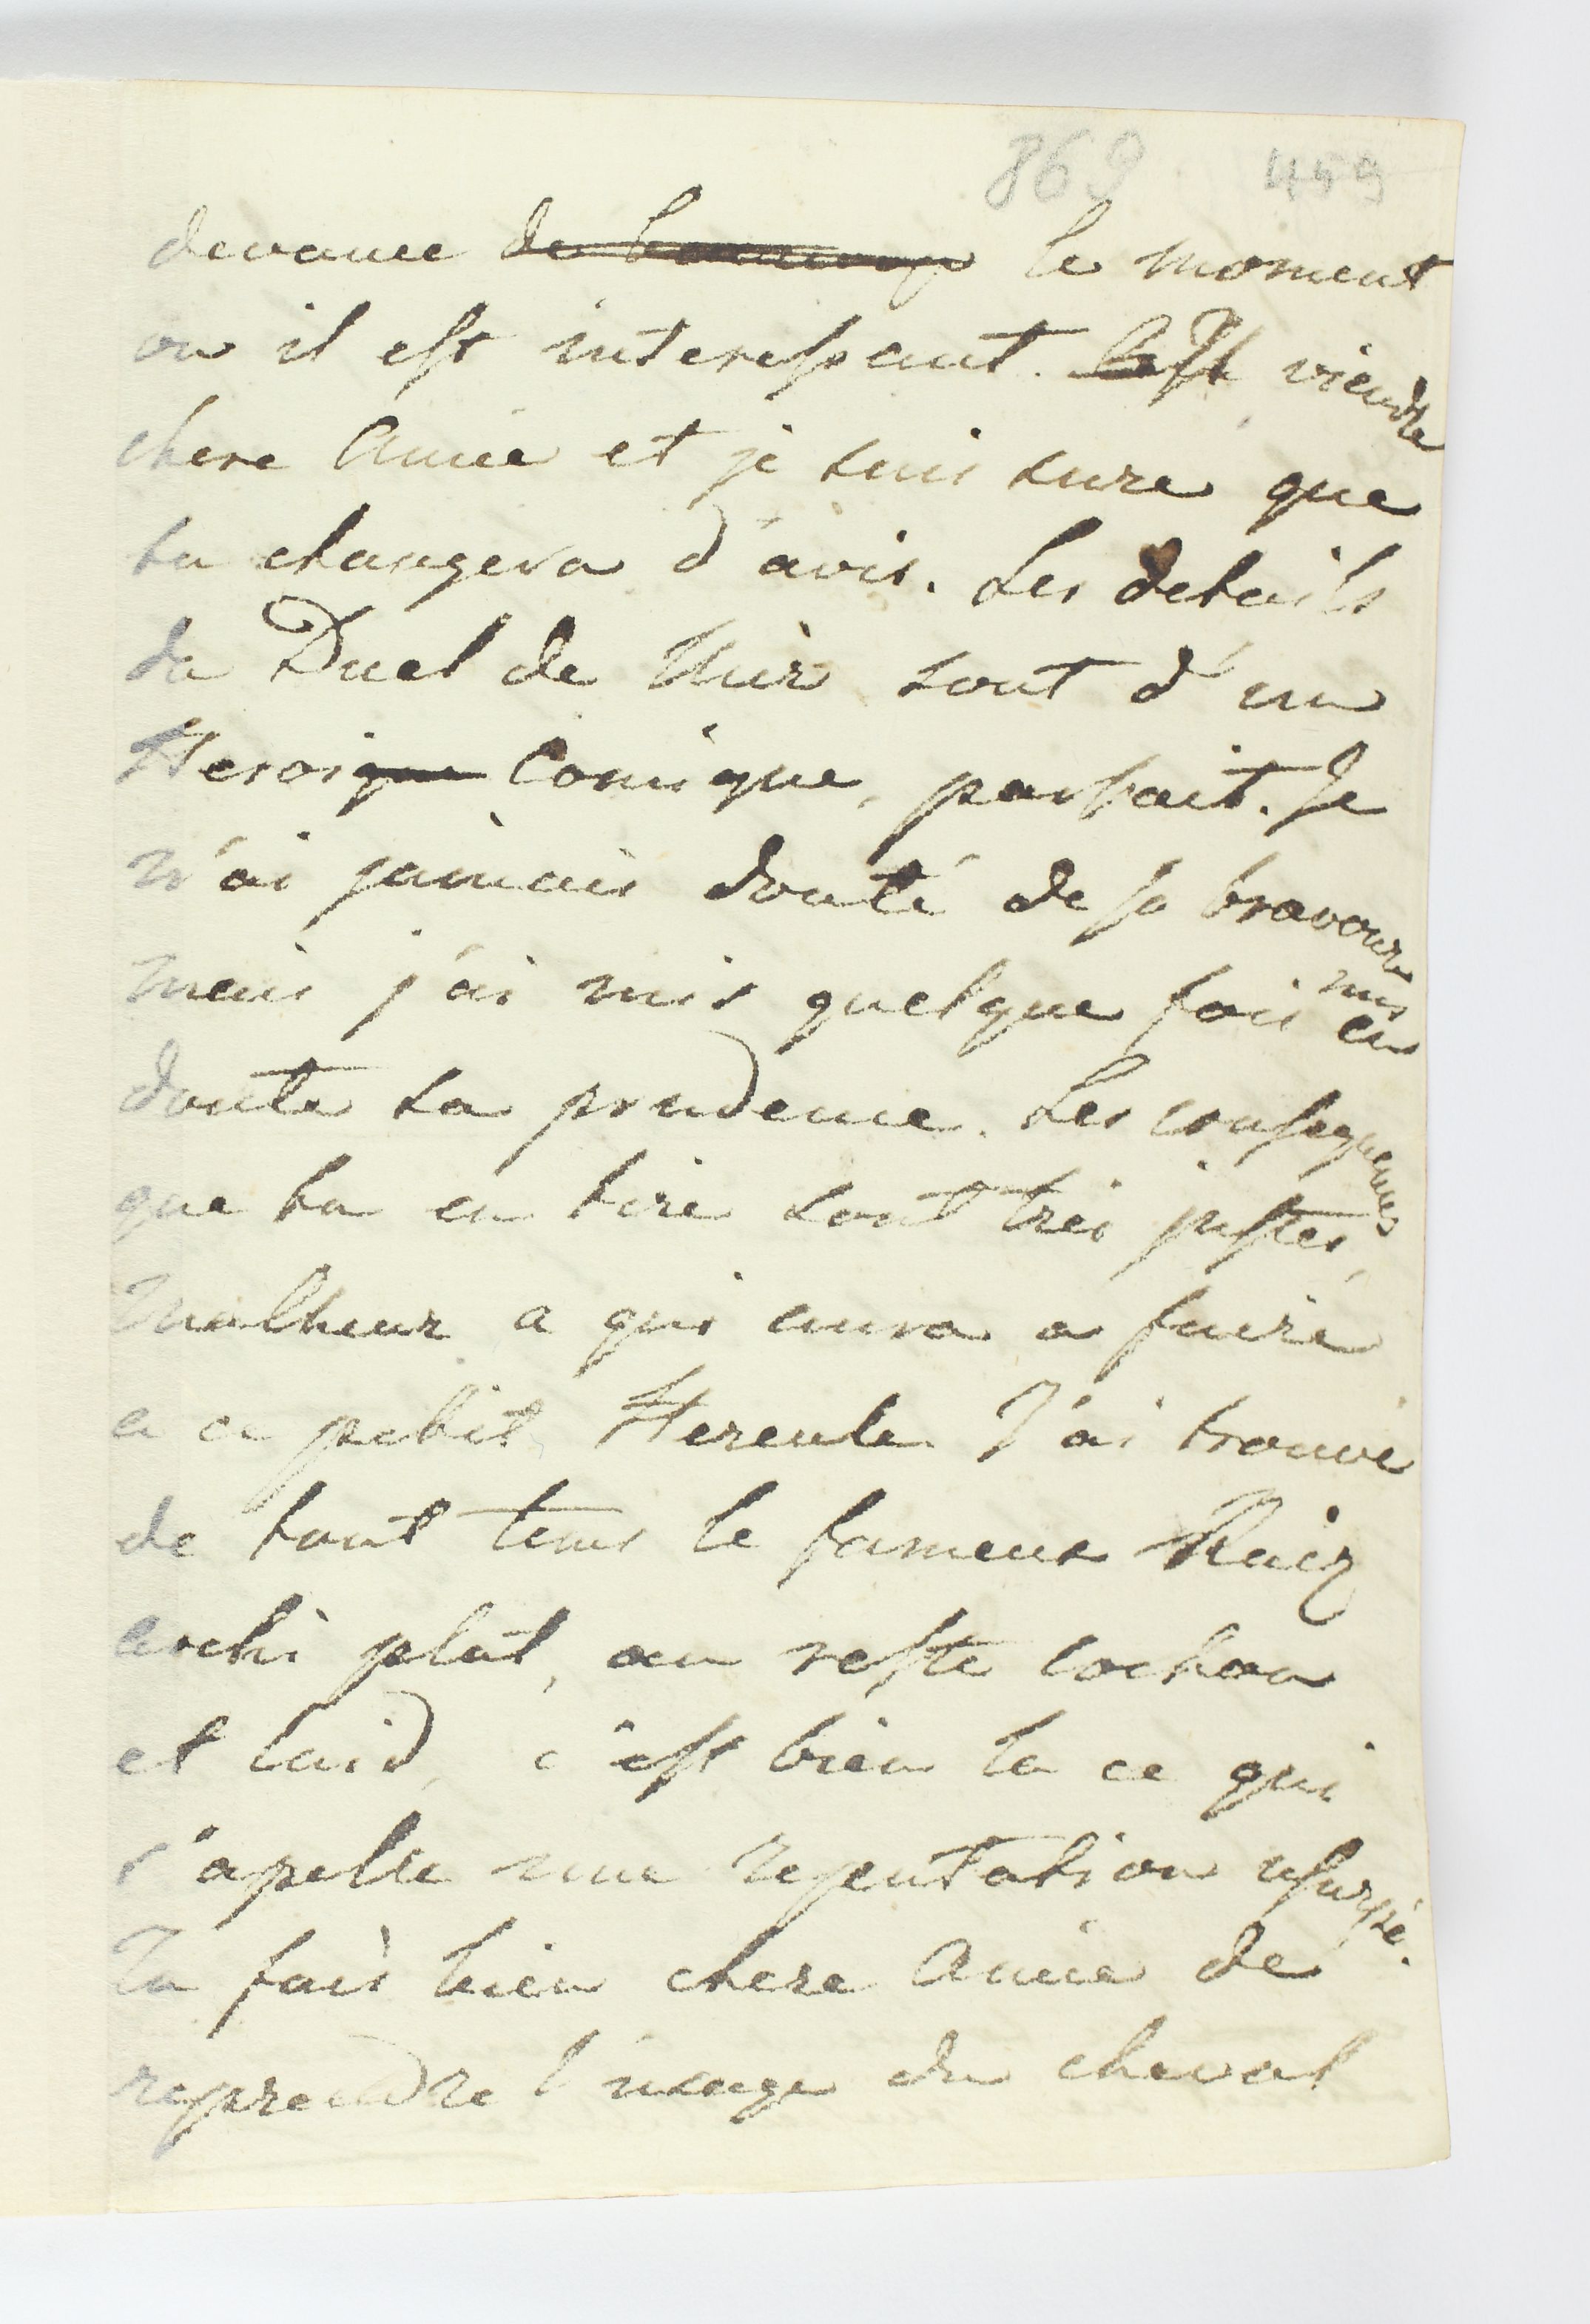 869 459
devance de beaucoup le moment
ou il est interessant. Il viendra
chere Amie et je suis sure que
tu changera d'avis. Les details
du Duel de sont d'un
Heroique Comique, parfait. Je
n'ai jamais douté de sa bravoure
mais j'ai mis quelque fois mis en
doute sa prudence. Les consequences
que tu en tire sont très justes,
Malheur a qui aura a faire
a ce petit Hercule. J'ai trouvé
de tout tems le fameux
archi plat, au reste cochon
et laid, c'est bien la ce qui
s'apelle une reputation usurpé.
Tu fais bien chere Amie de
reprendre l'usage du cheval